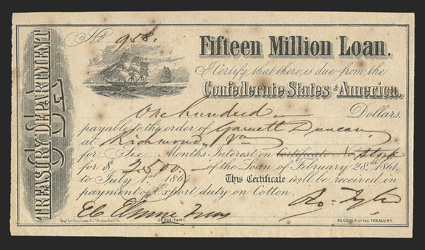 TREASURY DEPARTMENT
CSA
No
Fifteen Million Loan.
I Certify, that there is due from the
Confederate States of America,
One hundred Dollars,
payable to the order of Garnett Duncan
at Richmond Va
for Six Months Interest on Certificate Stock
for $ of the Loan of February 28th 1861,
to July 1st 186 This Certificate will be received in
payment of Export duty on Cotton.
E C Elmore Treas Ro. Tyler
REGISTER OF THE TREASURY.